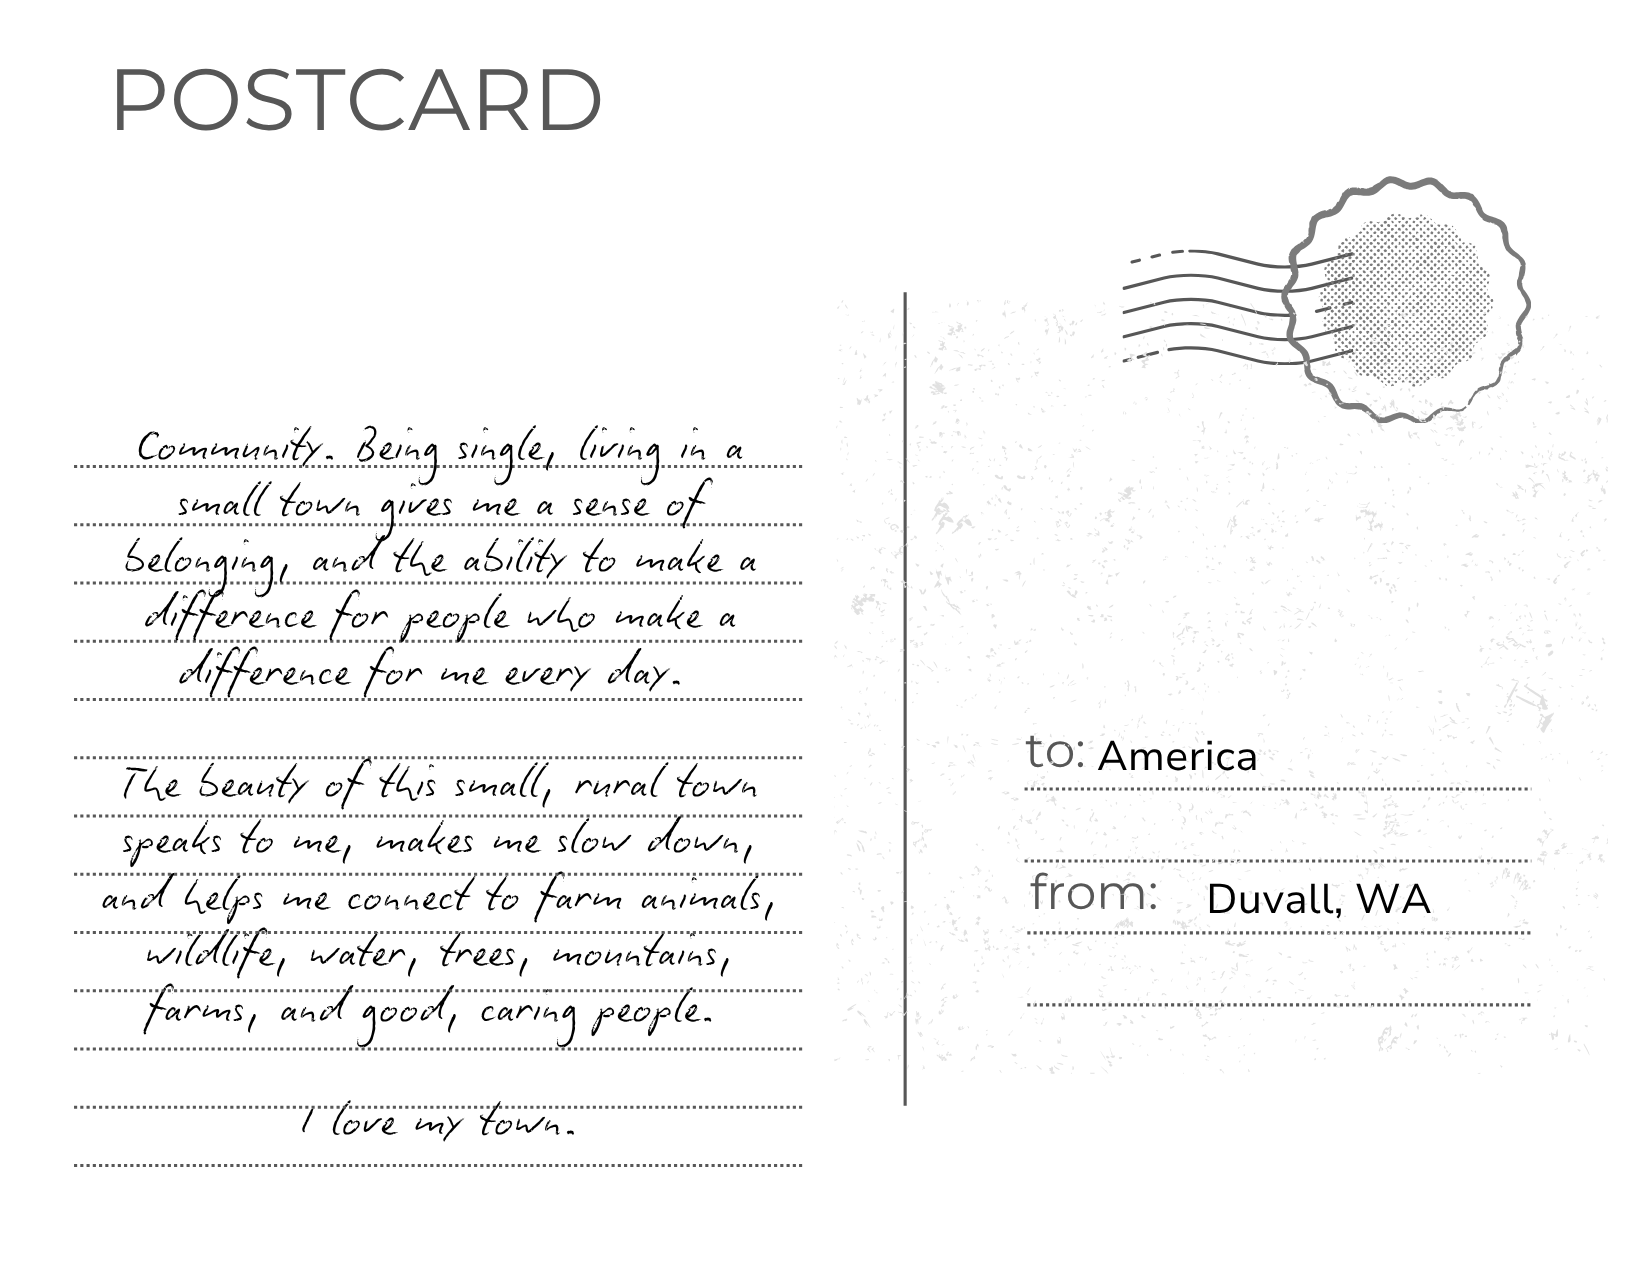 POSTCARD
Community. Being single, living in a
small town gives me a sense of
belonging, and the ability to make a
difference for people who make a
difference for me every day.
The beauty of this small, rural town
speaks to me, makes me slow down,
and helps me connect to farm animals,
wildlife, water, trees, mountains,
farms, and good, caring people.
I love my town.
to: America
from: Duvall, WA